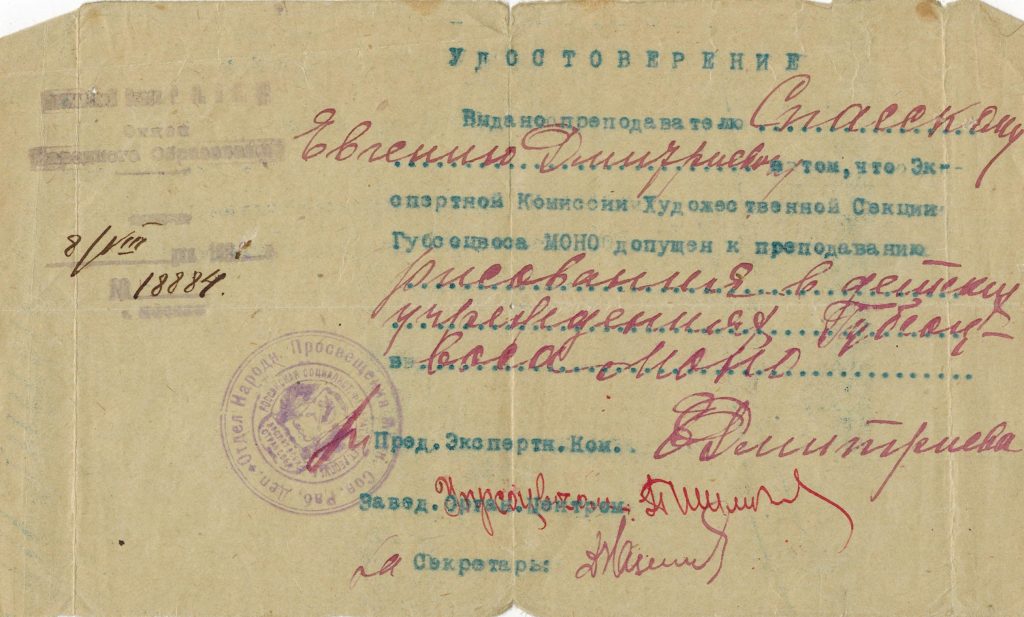 УДОСТОВЕРЕНИЕ
Выдано преподавателю Спасскому
Евгению Дмитриевичу в том, что Эк-
спертной Комиссии Художественной Секции
Губсоцвоса МОНО допущен к преподаванию
рисования в детских
учреждениях Губсоц-
воса МОНО
8/VIII
№ 18884.
Отдел Народн. Просвещения
Сов. Раб. Деп.
Пред. Экспертн. Ком. Дмитриева
Завед. Орган. Центром.
за Секретарь: